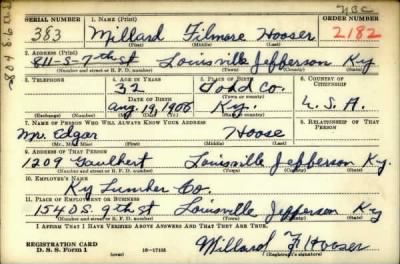 NBC
SERIAL NUMBER 1. NAME (Print) ORDER NUMBER
383 Millard Filmore Hooser 2182
(First) (Middle) (Last)
2. ADDRESS (Print)
811-S-7th St Louisville Jefferson Ky
(Number and street or R. F. D. number) (Town) (County) (State)
3. TELEPHONE 4. AGE IN YEARS 5. PLACE OF BIRTH 6. COUNTRY OF CITIZENSHIP
32 Todd Co.
DATE OF BIRTH (Town or county)
Aug. 19, 1908 Ky. U.S.A.
(Exchange) (Number) (Mo.) (Day) (Yr.) (State or country)
7. NAME OF PERSON WHO WILL ALWAYS KNOW YOUR ADDRESS 8. RELATIONSHIP OF THAT PERSON
Mr. Edgar Hoose
(Mr., Mrs., Miss) (First) (Middle) (Last)
9. ADDRESS OF THAT PERSON
1209 Gaulbert Louisville Jefferson Ky.
(Number and street or R. F. D. number) (Town) (County) (State)
10. EMPLOYER'S NAME
Ky Lumber Co.
11. PLACE OF EMPLOYMENT OR BUSINESS
1540 S. 9th St Louisville Jefferson Ky
(Number and street or R. F. D. number) (Town) (County) (State)
I AFFIRM THAT I HAVE VERIFIED ABOVE ANSWERS AND THAT THEY ARE TRUE.
REGISTRATION CARD
D. S. S. Form 1 (over) 16—17105 Millard F. Hooser
(Registrant's signature)